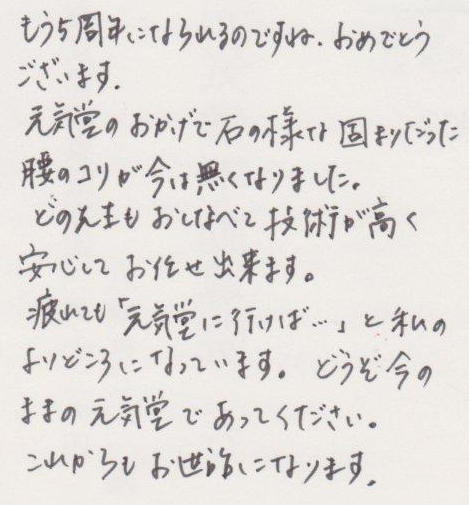 もう5周年になられるのですね.おめでとう
ございます.
元気堂のおかげで石の様な固まりだった
腰のコリが今は無くなりました。
どの先生もおしなべて技術が高く
安心してお任せ出来ます。
疲れても「元気堂に行けば…」と私の
よりどころになっています。どうぞ今の
ままの元気堂であってください。
これからもお世話になります.